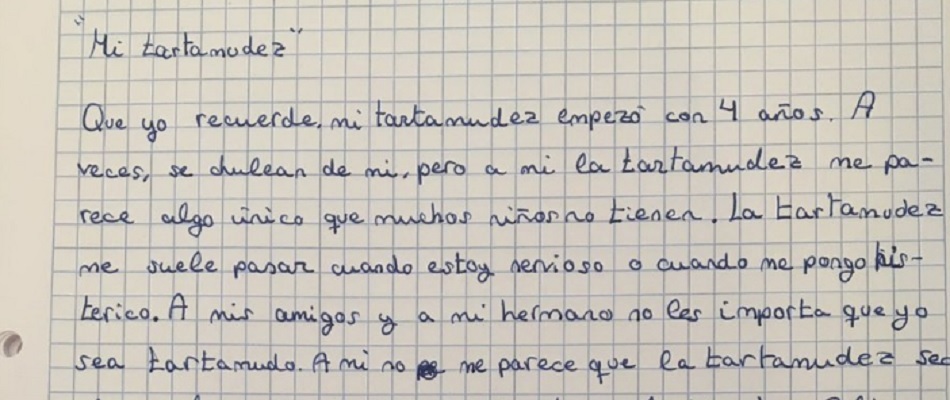 "Mi tartamudez"
Que yo recuerde, mi tartamudez empezó con 4 años. A
veces, se chulean de mi, pero a mi la tartamudez me pa-
rece algo único que muchos niños no tienen. La tartamudez
me suele pasar cuando estoy nervioso o cuando me pongo his-
terico. A mis amigos y a mi hermano no les importa que yo
sea tartamudo. A mi no me parece que la tartamudez sea